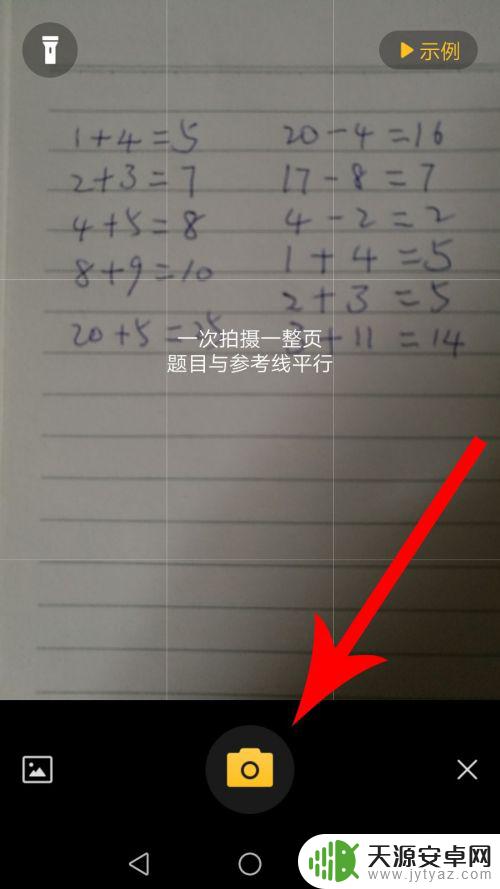 示例
1+4=5 20-4=16
2+3=7 17-8=7
4+5=8 4-2=2
8+9=10 1+4=5
2+3=5
20+5=25 3+11=14
一次拍摄一整页
题目与参考线平行
天源安卓网
www.jytyaz.com